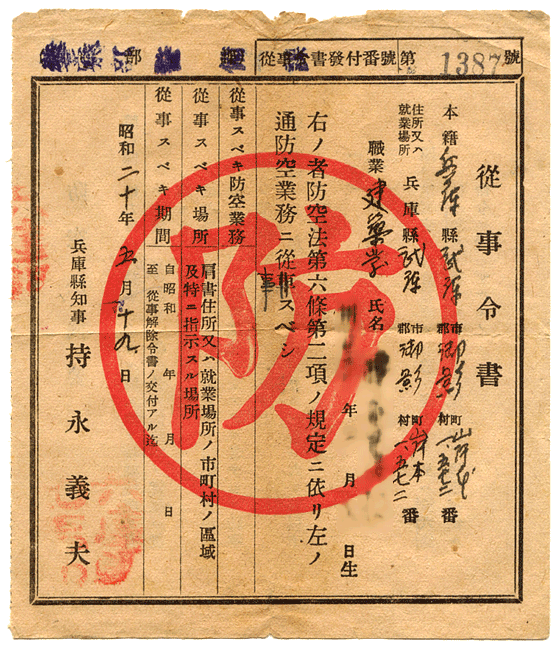 從事令書發付番號 第 1387 號
從事令書
本籍 兵庫縣武庫郡御影町岸本一、五七二番
住所又ハ就業場所 兵庫縣武庫郡御影町岸本一、五七二番
職業 建築業 氏名
年 月 日生
右ノ者防空法第六條第二項ノ規定ニ依リ左ノ
通防空業務ニ從事スベシ
從事スベキ防空業務
從事スベキ場所 肩書住所又ハ就業場所ノ市町村ノ區域及特ニ指示スル場所
從事スベキ期間 自昭和 年 月 日
至 從事解除令書ノ交付アル迄
昭和二十年五月十九日
兵庫縣知事 持永義夫
防